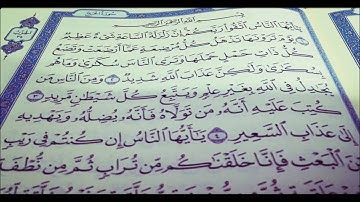 سورة الحج
بسم الله الرحمن الرحيم
يأيها الناس اتقوا ربكم إن زلزلة الساعة شيء عظيم ١
يوم ترونها تذهل كل مرضعة عما أرضعت وتضع
كل ذات حمل حملها وترى الناس سكرى وما هم
بسكرى ولكن عذاب الله شديد ٢ ومن الناس من
يجدل في الله بغير علم ويتبع كل شيطن مريد ٣
كتب عليه أنه من تولاه فأنه يضله ويهديه
إلى عذاب السعير ٤ يأيها الناس إن كنتم في ريب
من البعث فإنا خلقنكم من تراب ثم من نطفة